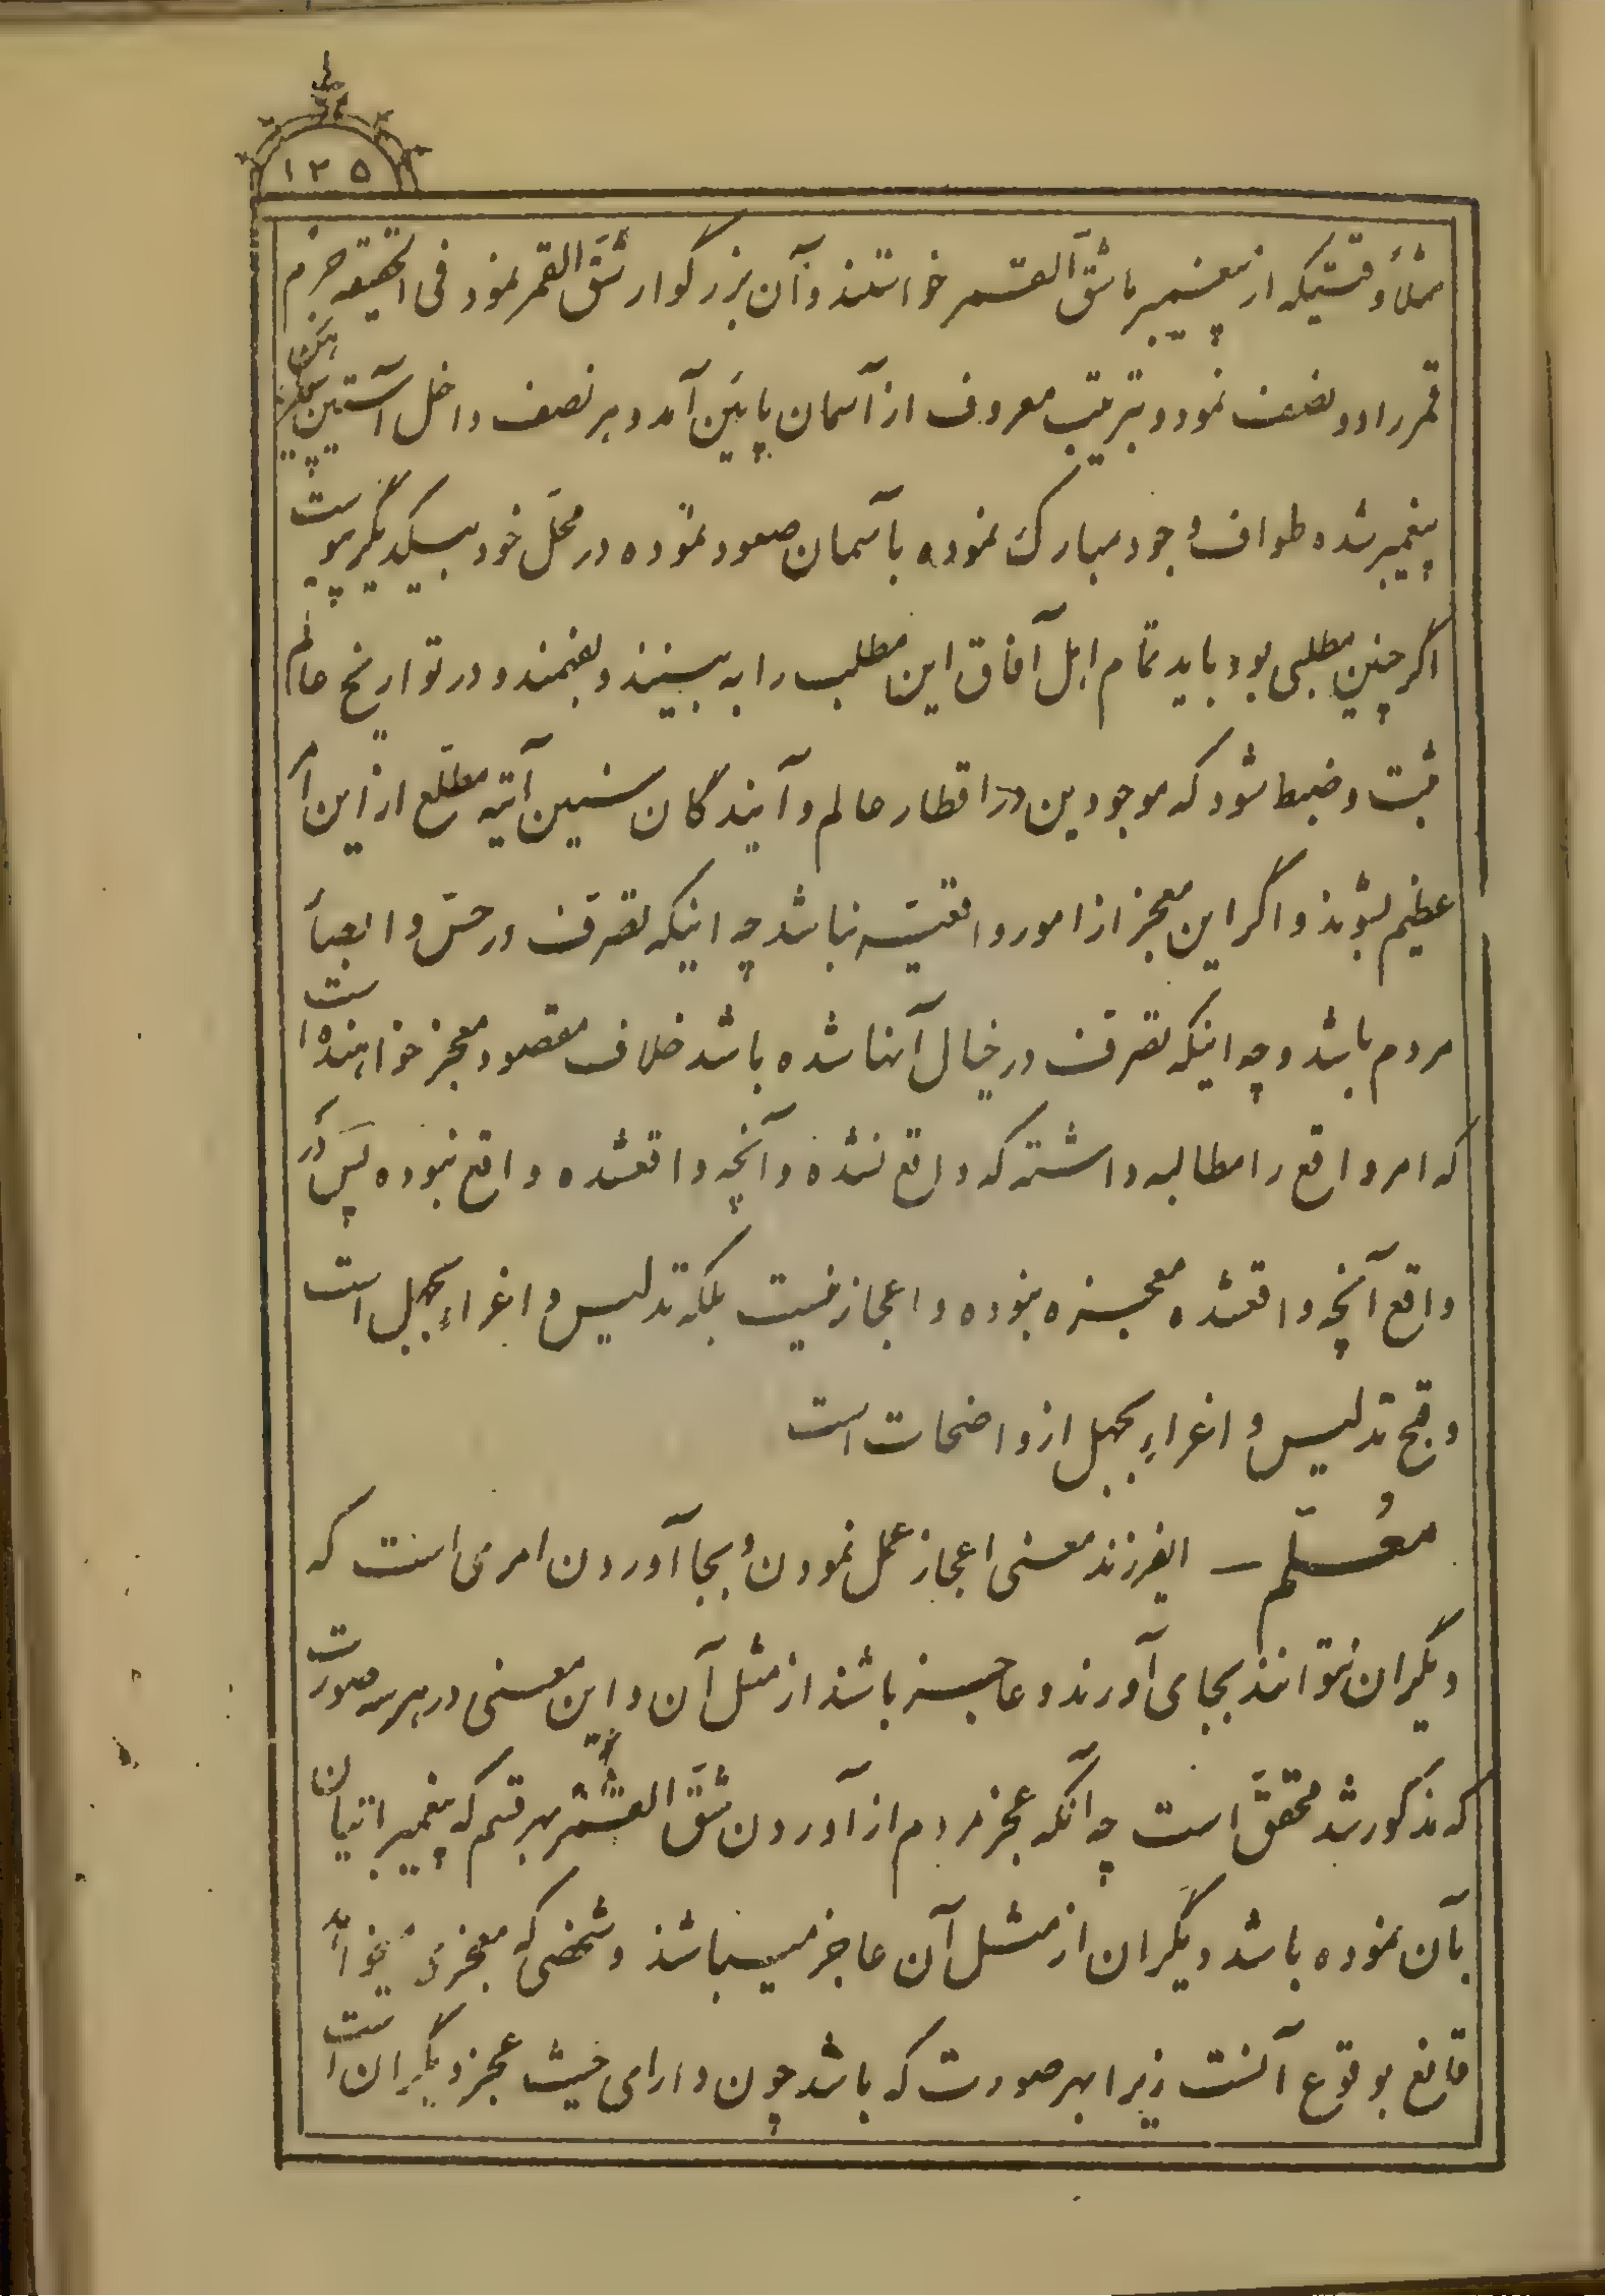 ۱۲۵
مثلاً وقتیکه از پیغمبر ما شقّ القمر خواستند و آن بزرگوار شقّ القمر نمود فی الحقیقه جرم
قمر را دو نصف نمود و بترتیب معروف از آسمان پایین آمد و هر نصف داخل آستین
پیغمبر شده طواف وجود مبارک نموده بآسمان صعود نموده در محلّ خود بیکدیگر پیوست
اگر چنین مطلبی بود باید تمام اهل آفاق این مطلب را به بینند و بفهمند و در تواریخ عالم
ثبت و ضبط شود که موجودین در اقطار عالم و آیندگان سنین آتیه مطّلع از این امر
عظیم بشوند و اگر این معجز از امور واقعیّه نباشد چه اینکه تصرّف در حسّ و ابصار
مردم باشد و چه اینکه تصرّف در خیال آنها شده باشد خلاف مقصود معجز خواهنده است
که امر واقع را مطالبه داشته که واقع نشده و آنچه واقعشده واقع نبوده پس در
واقع آنچه واقعشده معجزه نبوده و اعجاز نیست بلکه تدلیس و اغراء بجهل است
و قبح تدلیس و اغراء بجهل از واضحات است
معُلّم – ایفرزند معنی اعجاز عمل نمودن و بجا آوردن امری است که
دیگران نتوانند بجای آورند و عاجز باشند از مثل آن و این معنی در هر سه صورت
که مذکور شد محقّق است چه آنکه عجز مردم از آوردن شقّ القمر بهر قسم که پیغمبر اتیان
بآن نموده باشد دیگران از مثل آن عاجز میباشند و شخصی که معجزی میخواهد
قانع بوقوع آنست زیرا بهر صورت که باشد چون دارای حیث عجز دیگران است